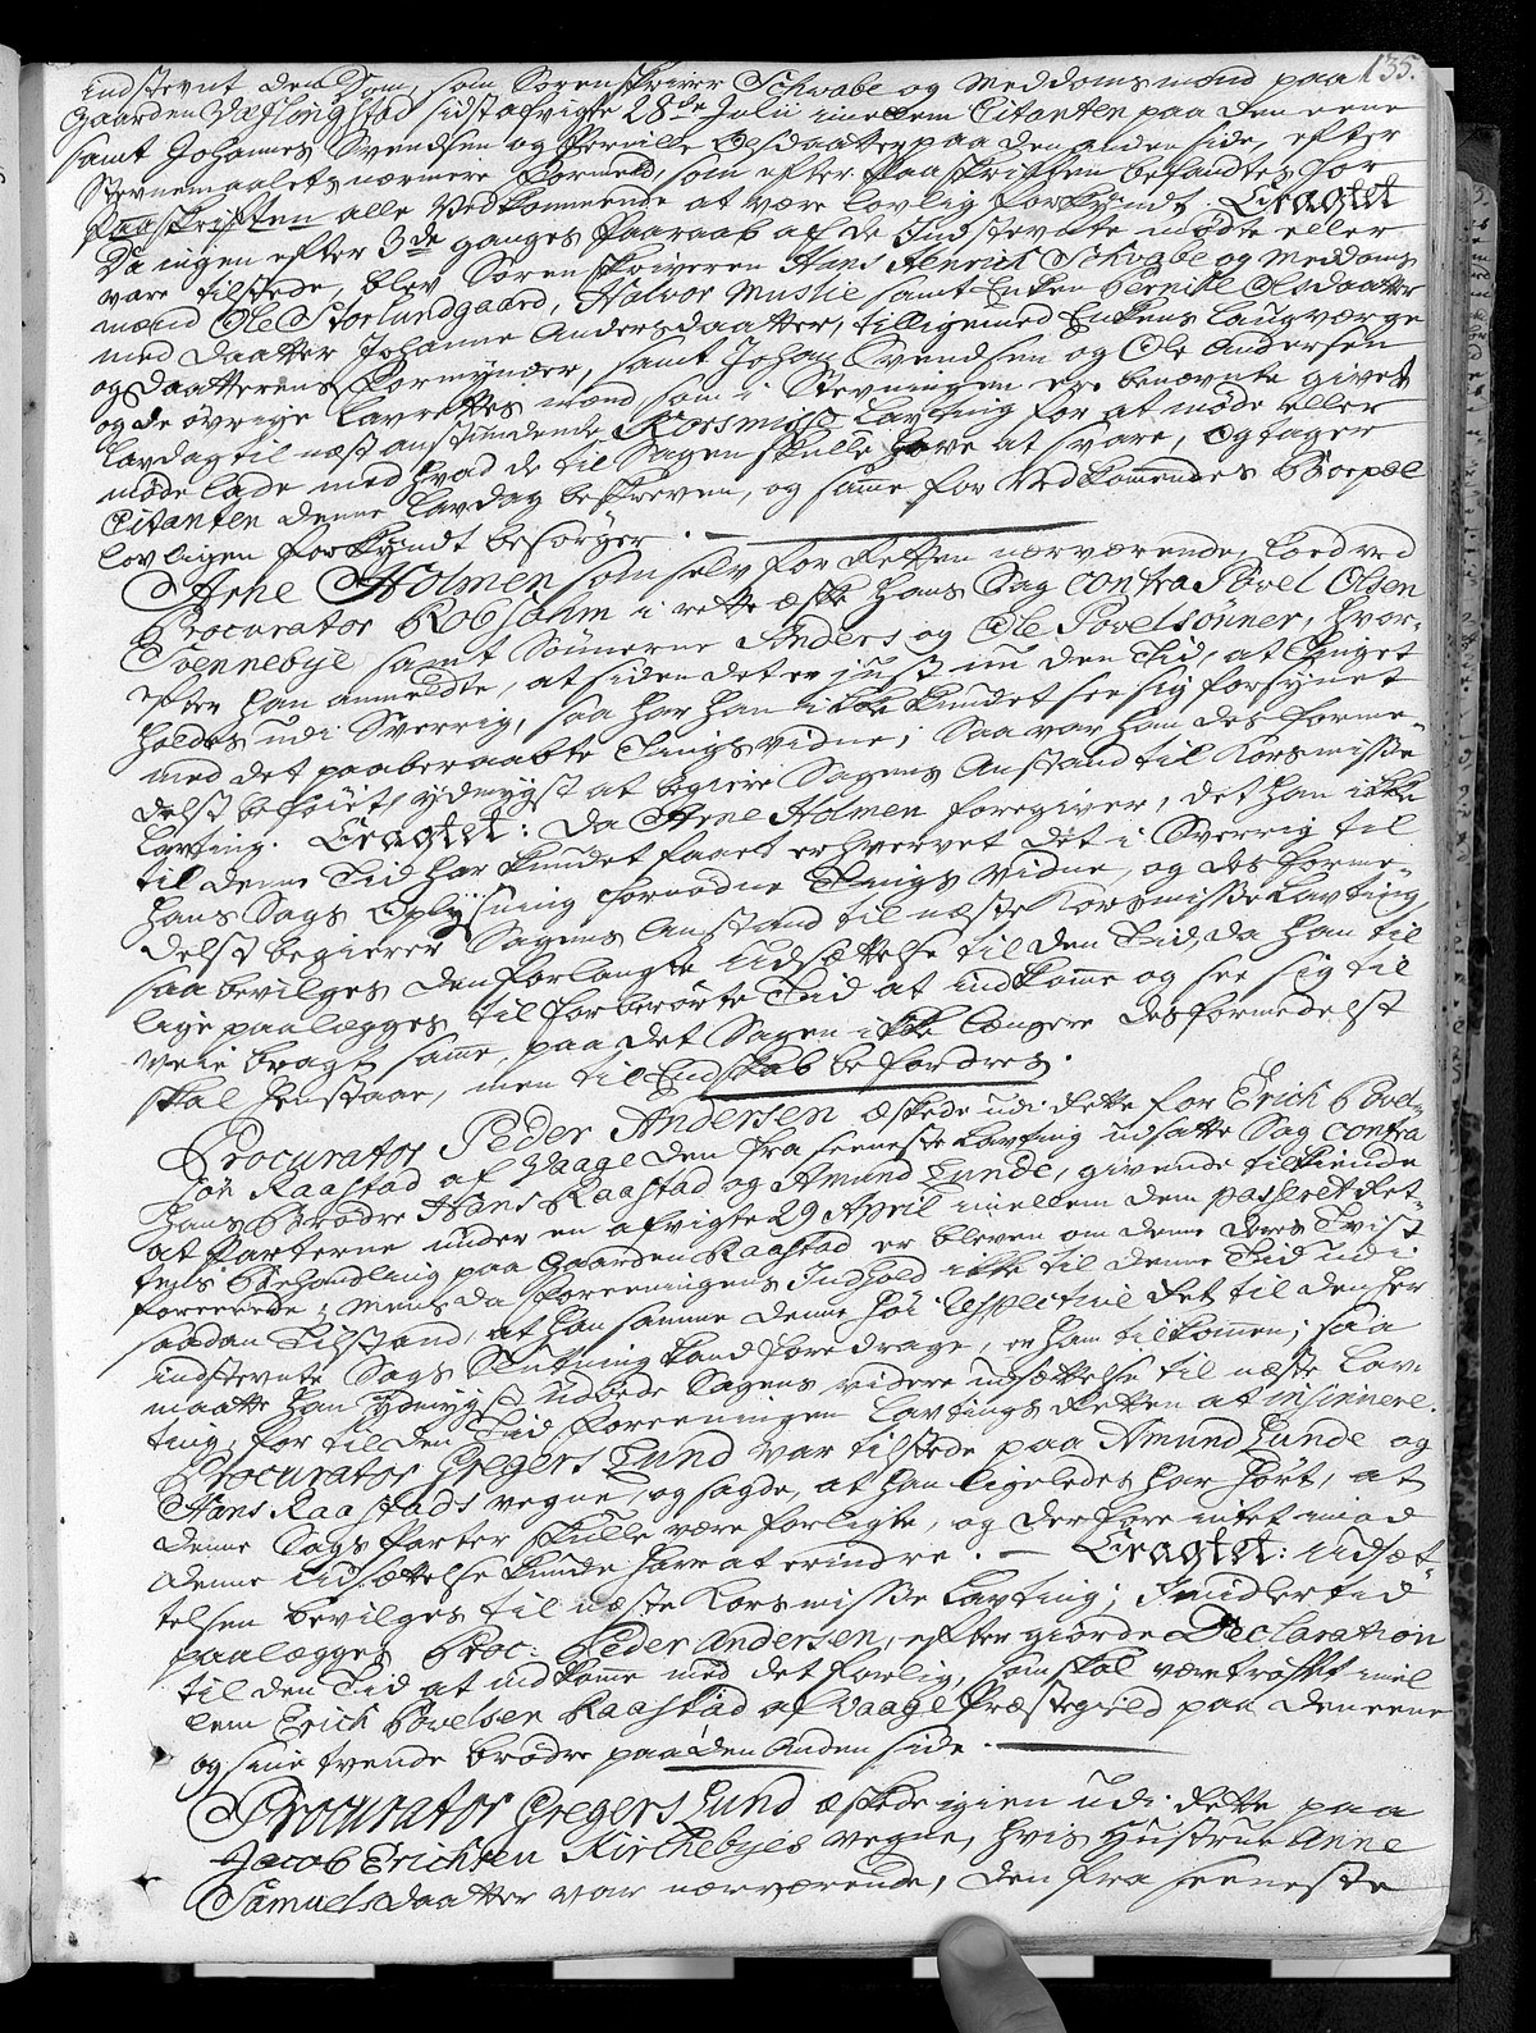 135.
indstevnt den Dom, som Sorenskriver Schwabe og Meddomsmænd paa
Gaarden Weslingstad sidstafvigte 28de Julii imellem Citanten paa den eene
samt Johannes Svendsen og Pernille Olsdaatter paa den anden side, efter
Stevnemaalets nærmere Formeld, som efter Paaskriften befandtes for
Paaskriften alle Vedkommende at være lovlig forkyndt. Eragtet
Da ingen efter 3de ganges Paaraab af de Indstevnte mødte eller
vare tilstede, blev Sorenskriveren Hans Henrich Schwabe og Meddoms
mænd Ole Storlundgaard, Halvor Muslie samt Enken Pernille Olsdaatter
med Daatter Johanne Andersdaatter, tilligemed Enkens Laugværge
og Daatterens Formynder, samt Johan Svendsen og Ole Andersen
og de øvrige Lavrettes mænd som i Stevningen ere benævnte givet
Lavdag til næst anstundende Korsmisse Lavting for at møde eller
møde lade med hvad de til Sagen skulle have at svare, og tager
Citanten denne Lavdag beskreven, og samme for Vedkommendes Boepæl
lovligen forkyndt besørger.
Arne Holmen som selv for Retten nærværende, loed ved
Procurator Robsahm i rette æske hans Sag contra Povel Olsen
Svennebye samt Sønnerne Anders og Ole Povelsønner, hvor-
efter han anmeldte, at siden det er just nu den Tid, at Tinget
holdes udi Sverrig, saa har han ikke kundet see sig forsynet
med det paaberaabte Tingsvidne; Saa var han des forme-
delst beføiet, ydmygst at begiere Sagens Anstand til Korsmisse
Lavting. Eragtet: Da Arne Holmen foregiver, det han ikke
til denne Tid har kundet faaet erhvervet det i Sverrig til
hans Sags Oplysning fornødne Tings Vidne, og des forme-
delst begierer Sagens Anstand til næste Korsmisse Lavting,
saa bevilges den forlangte Udsættelse til den Tid, da han til
lige paalægges til forberørte Tid at indkomme og see sig til
veie bragt samme, paa det Sagen ikke længere desformedelst
skal henstaae, men til Endskab befordres.
Procurator Peder Andersen æskede udi Rette for Erich Povel-
søn Raastad af Vaage den fra seeneste Lavting udsatte Sag contra
hans Brødre Hans Raastad og Amund Lunde, givende tilkiende
at Parterne under en afvigte 29 April imellem dem passeret Ret-
tens Behandling paa Gaarden Raastad er bleven om denne deres Tvist
foreenede; mens da Foreeningens Indhold ikke til denne Tid udi
saadan Tilstand, at han samme denne høi Respective Ret til den her
indstevnte Sags Slutning kand foredrage, er ham tilkommen; saa
maatte han ydmygst udbede Sagens videre udsættelse til næste Lav-
ting, for til den Tid Foreeningen Lavtings Retten at insinuere.
Procurator Gregers Lund var tilstede paa Amund Lunde og
Hans Raastads vegne, og sagde, at han ligeledes har hørt, at
denne Sags Parter skulle være forligte, og derfore intet imod
denne Udsættelse kunde have at erindre. — Eragtet: Udsæt-
telsen bevilges til næste Korsmisse Lavting; Imidlertid
paalægges Proc: Peder Andersen, efter giorde Declaration
til den Tid at indkomme med det Forlig, som skal være truffet imel
lem Erich Povelsen Raastad af Vaage Præstegield paa den eene
og sine tvende brødre paa den Anden side.
Procurator Gregers Lund æskede igien udi Rette paa
Jacob Erichsen Kirchebyes vegne, hvis Hustrue Anne
Samuelsdaatter var nærværende, den fra seeneste